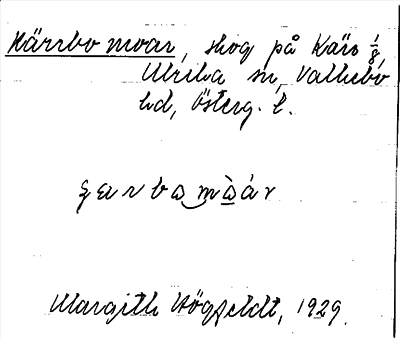 Kärrbo moar, skog på Kärr ⅛,
Ulrika sn, Vallebo
hd, Österg. l.
ɕærbo mωár
Margith Högfeldt, 1929.